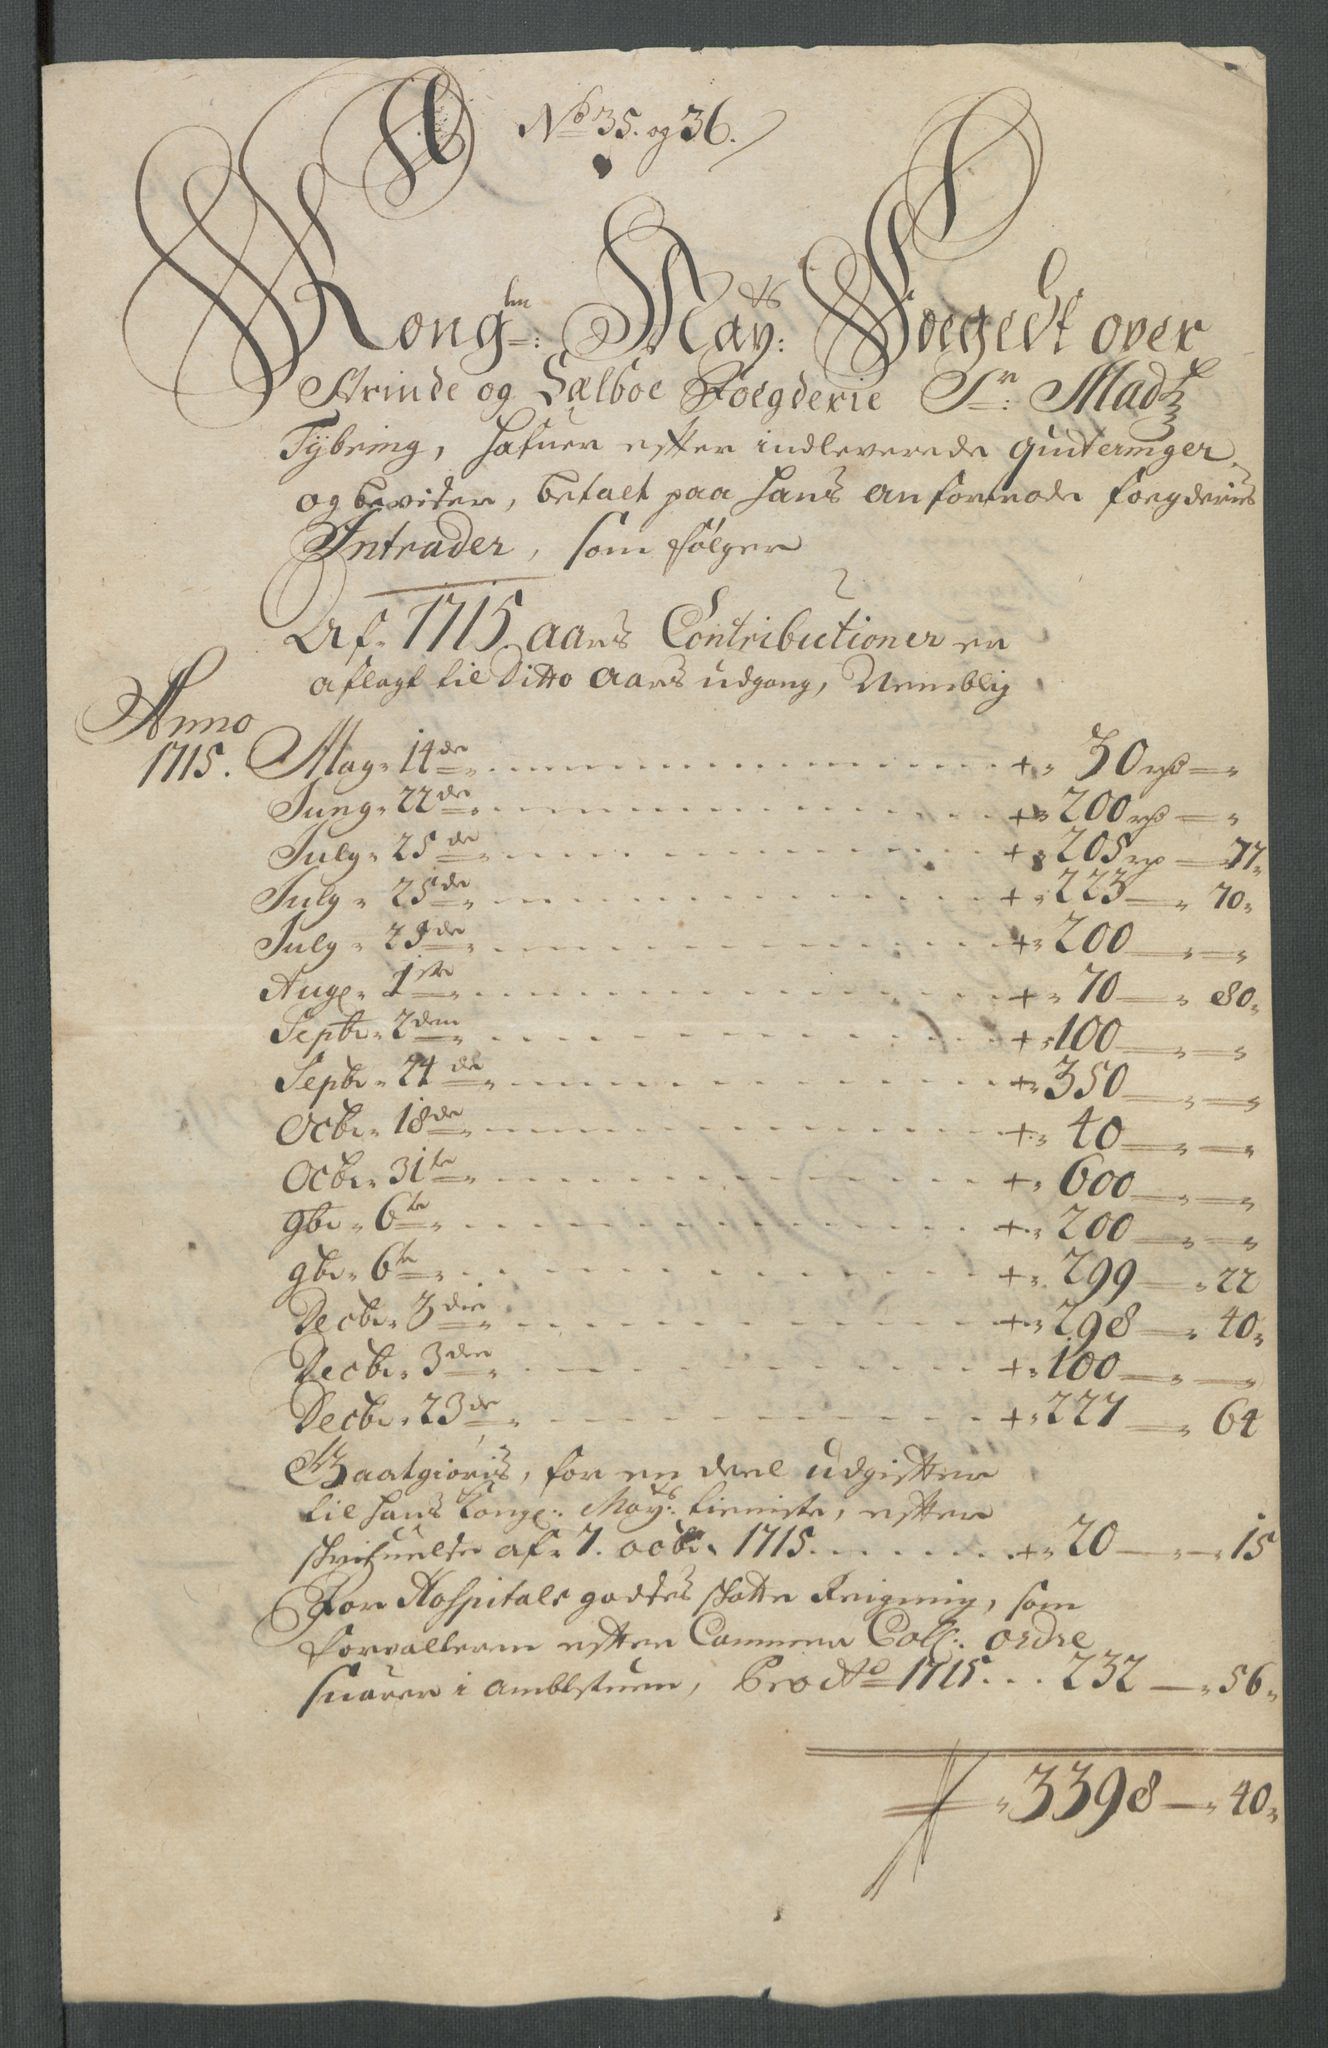 No 35. og 36.
Kong:lm May:ts Foegedt over
Strinde og Sælboe Foegderie Sr: Madtz
Tÿbring, hafuer efter indleverede quiteringer
og beviser, betalt paa hans anfortrode foegderies
Intrader, som følger
Af 1715 aars Contributioner er
aflagt til Ditto aars udgang, Nemblig
Anno
1715. May 14de + 30 rd
Juny 22de + 200 rd
July 25de + 205 rd 77
July 25de + 223 70
July 29de + 200
Aug: 1ste + 70 80
Septbr 2den + 100
Septbr 24de + 350
Octbr 18de + 40
Octbr 31te + 600
9br 6te + 200
9br 6te + 299 22
Decbr 3die + 298 40
Decbr 3die + 100
Decbr 23de + 227 64
Baatgiøris, for en deel udgifter
til hans Kongl: Mays: tieniste, efter
skrifuelse af 7. octbr 1715 + 20 15
For Hospitals godtzes skatte Reigning, som
forvalteren efter Cammer Coll: ordre
suarer i ambtstuen, Pro Ao 1715 232 56
3398 40